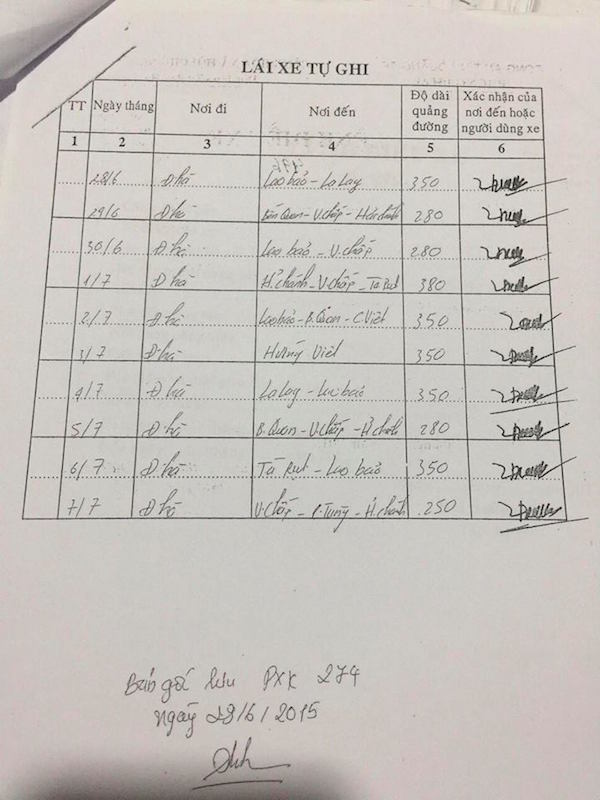 LÁI XE TỰ GHI
TT Ngày tháng Nơi đi Nơi đến Độ dài quảng đường Xác nhận của nơi đến hoặc người dùng xe
1 2 3 4 5 6
28/6 Đ hà Lao bảo - Lalay 350
29/6 Đ hà Bến Quan - V. Chấp - Hải chánh 280
30/6 Đ hà Lao bảo - V. Chấp 280
1/7 Đ hà H. chánh - V. Chấp - Tà Rụt 380
2/7 Đ hà Lao bảo - B. Quan - C. Việt 350
3/7 Đ hà Hướng Việt 350
4/7 Đ hà Lalay - Lao bảo 350
5/7 Đ hà B. Quan - V. Chấp - H. chánh 280
6/7 Đ hà Tà Rụt - Lao bảo 350
7/7 Đ hà V. Chấp - P. Tung - H. chánh 250
Bản gốc lưu PXK 274
ngày 28/6/2015